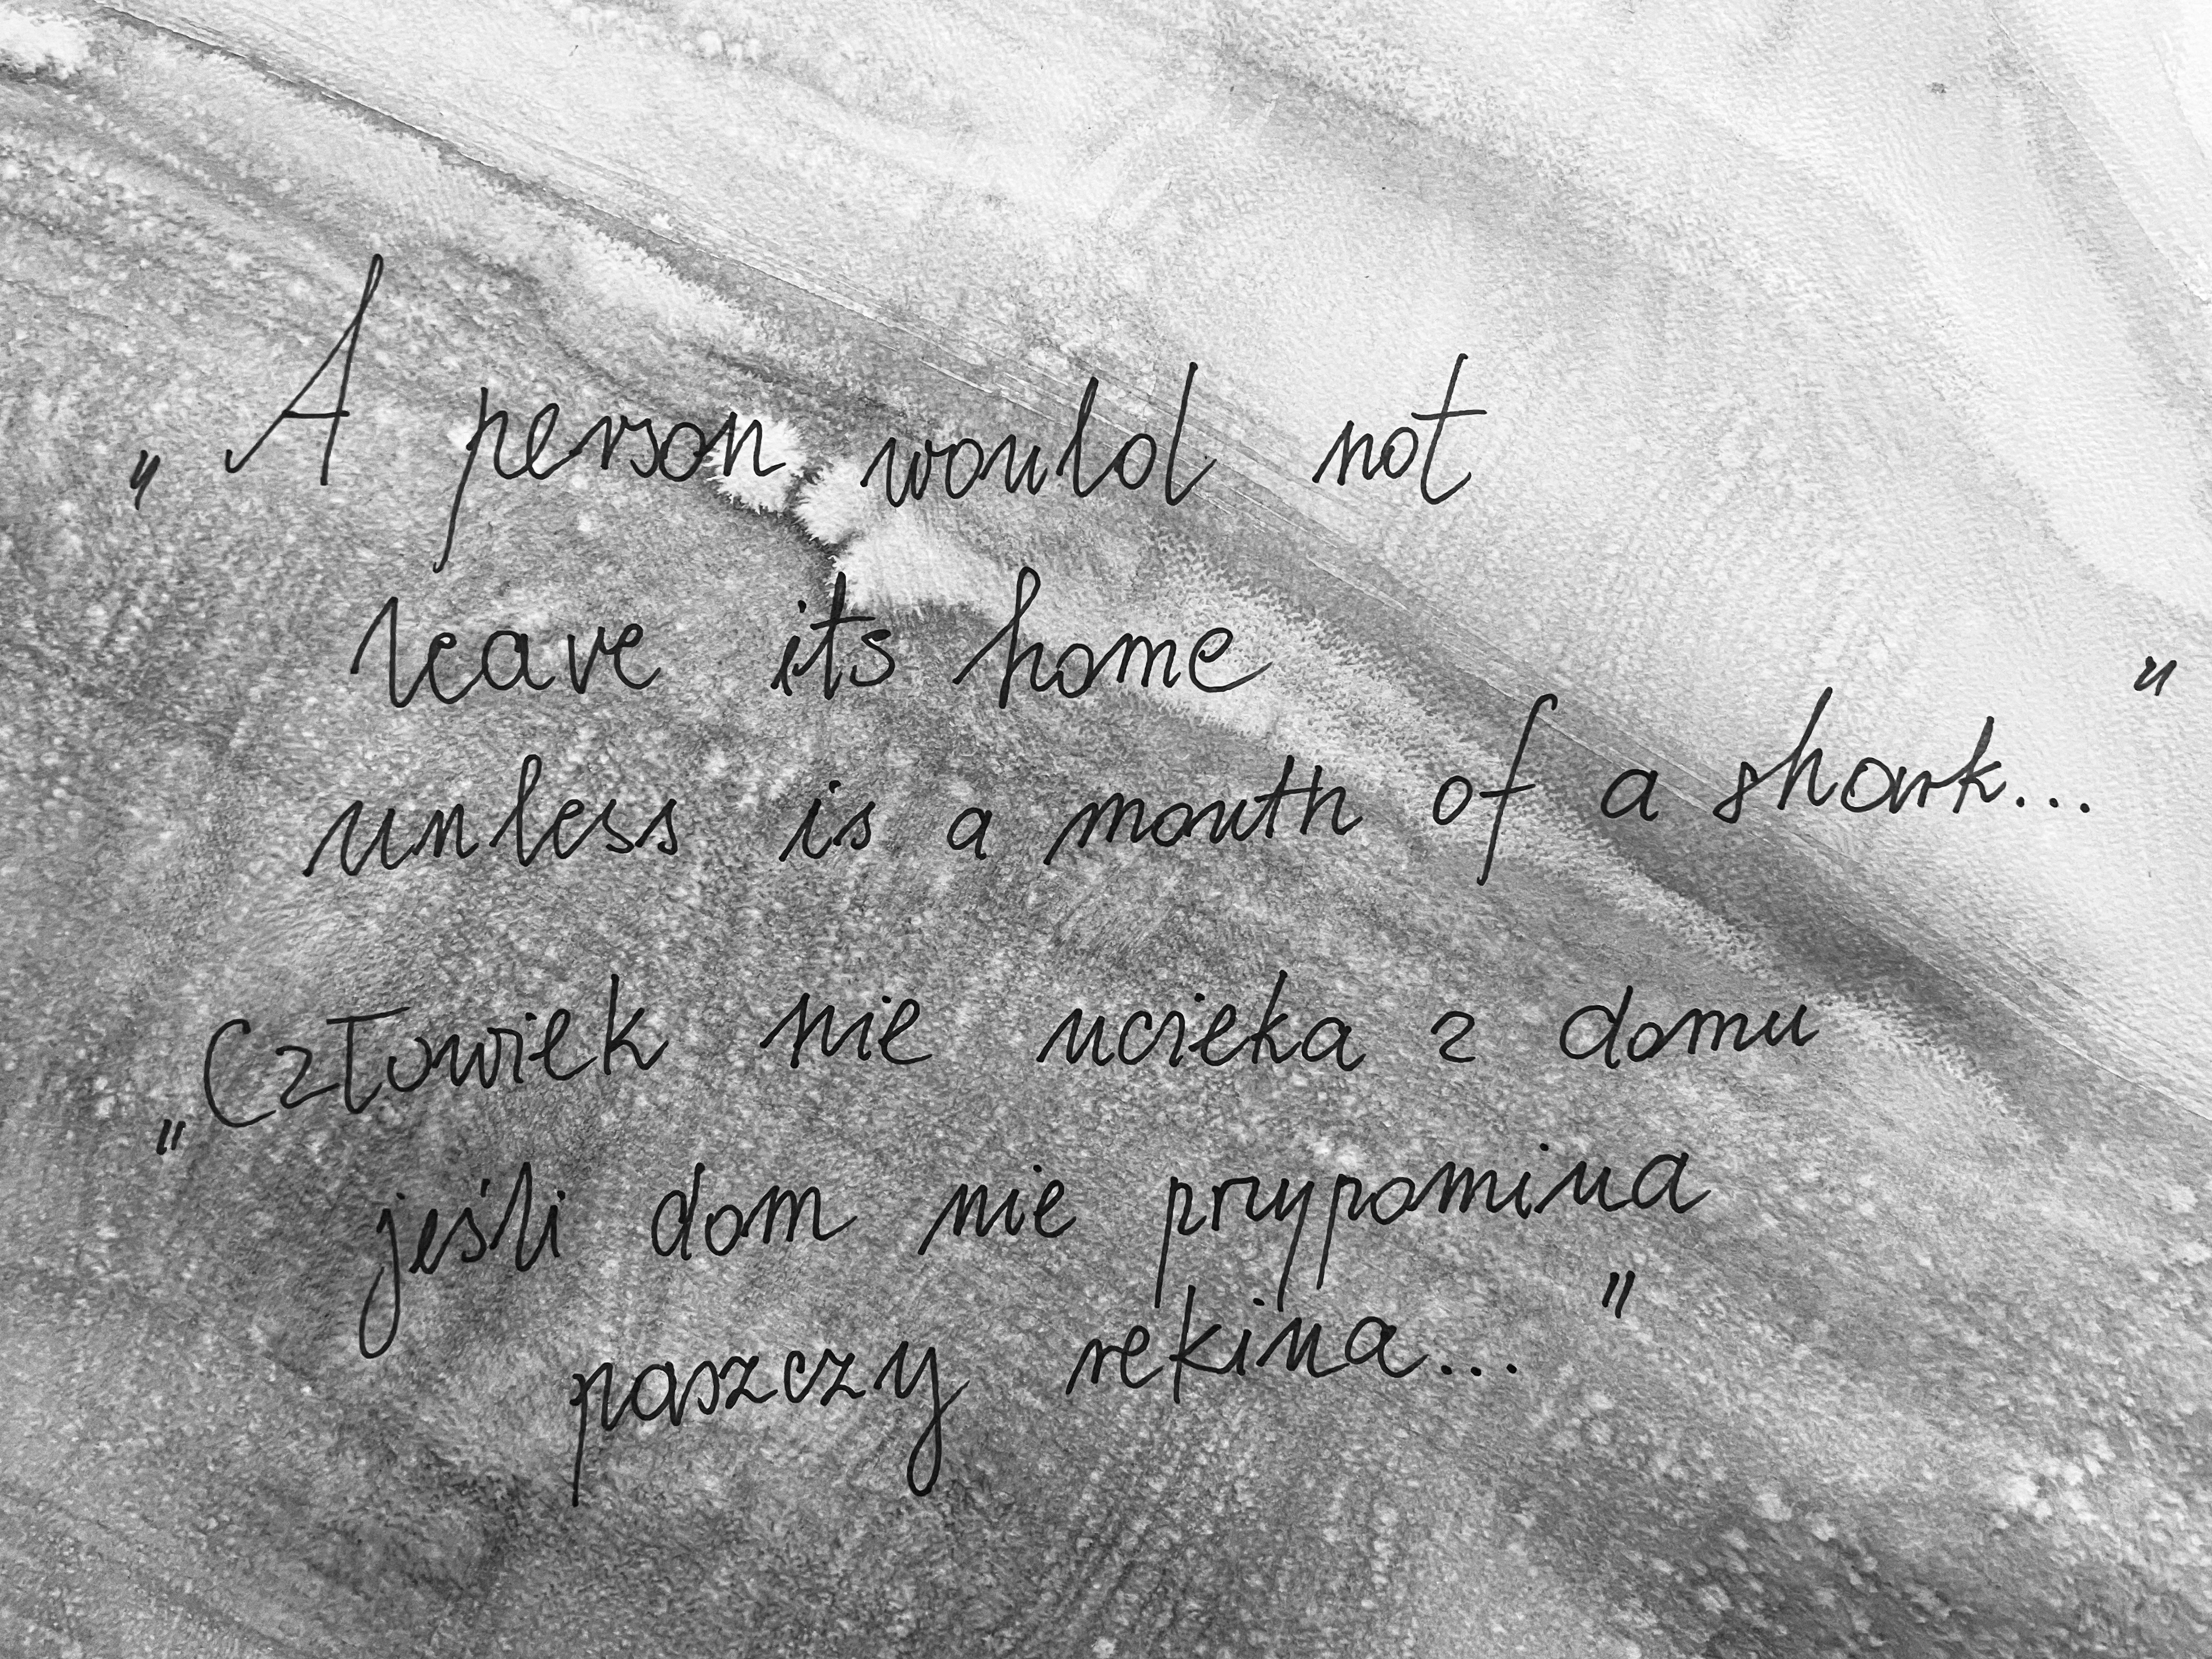 „A person would not
leave its home
unless is a mouth of a shark..."
„Człowiek nie ucieka z domu
jeśli dom nie przypomina
paszczy rekina..."